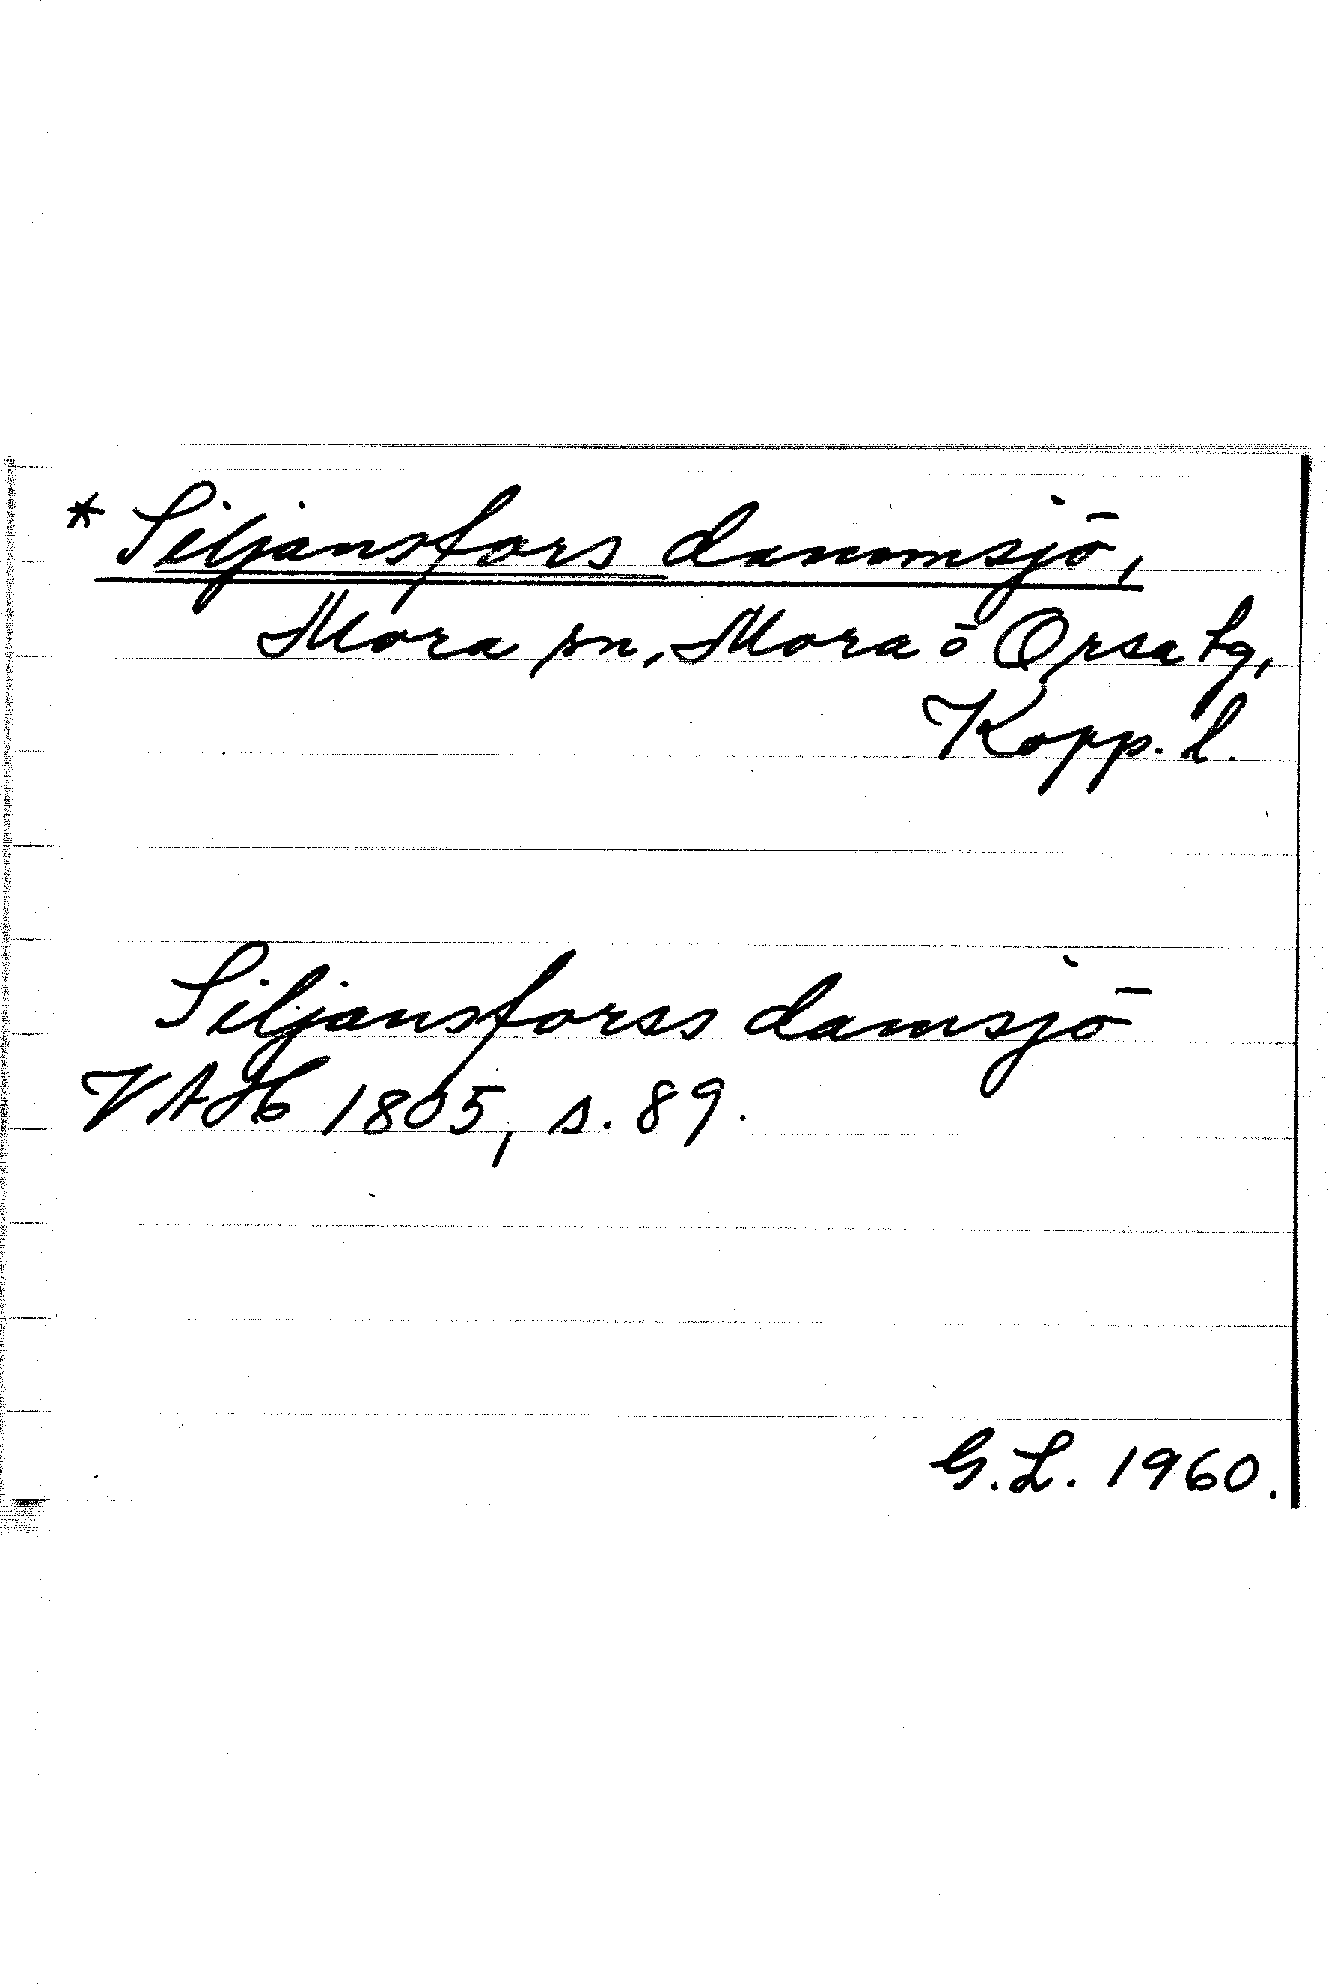 * Siljansfors dammsjö,
Mora sn, Mora o Orsa tg,
Kopp. l.
Siljansforss damsjö
VAH 1805, s. 89.
G.L. 1960.